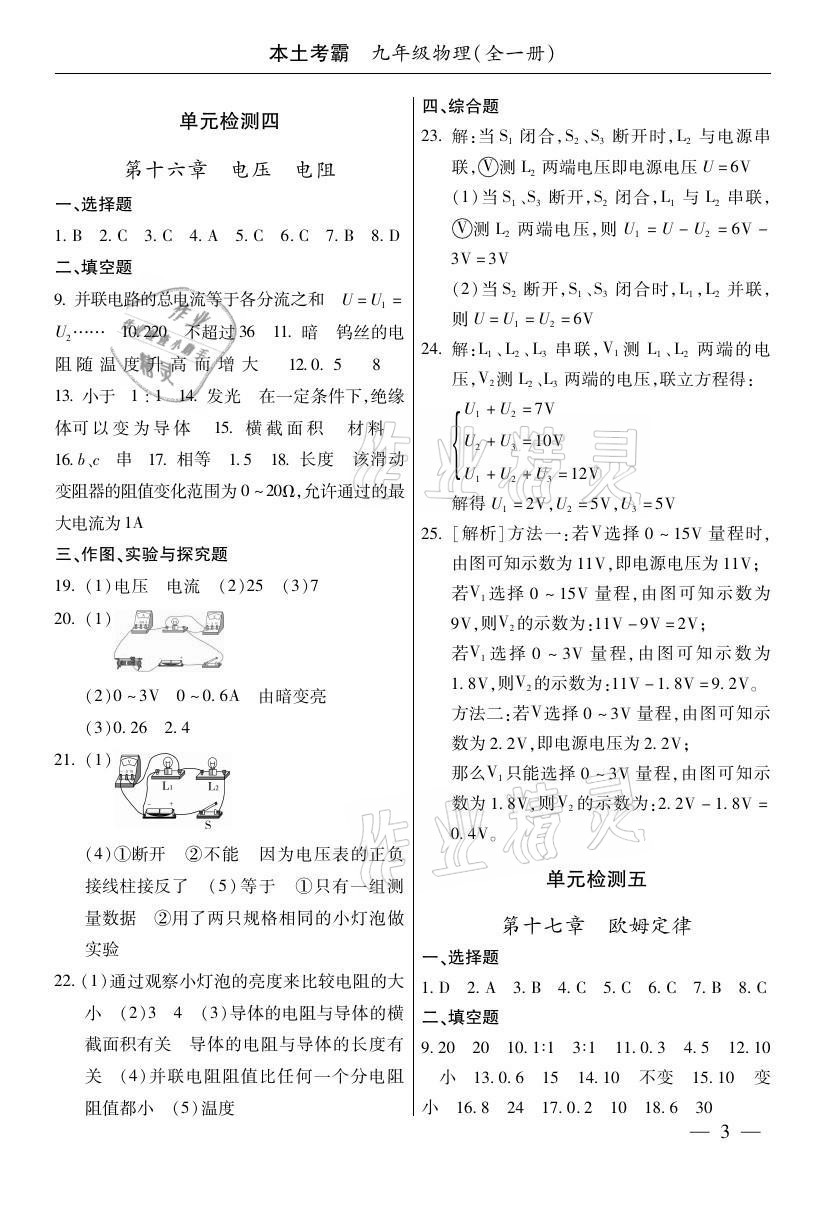 本土考霸 九年级物理(全一册)
单元检测四
第十六章 电压 电阻
一、选择题
1. B 2. C 3. C 4. A 5. C 6. C 7. B 8. D
二、填空题
9. 并联电路的总电流等于各分流之和 U = U₁ =
U₂…… 10. 220 不超过 36 11. 暗 钨丝的电
阻随温度升高而增大 12. 0. 5 8
13. 小于 1 : 1 14. 发光 在一定条件下,绝缘
体可以变为导体 15. 横截面积 材料
16. b、c 串 17. 相等 1. 5 18. 长度 该滑动
变阻器的阻值变化范围为 0 ~ 20Ω,允许通过的最
大电流为 1A
三、作图、实验与探究题
19. (1)电压 电流 (2)25 (3)7
20. (1)
(2)0 ~ 3V 0 ~ 0. 6A 由暗变亮
(3)0. 26 2. 4
21. (1)
L₁ L₂
S
(4)①断开 ②不能 因为电压表的正负
接线柱接反了 (5)等于 ①只有一组测
量数据 ②用了两只规格相同的小灯泡做
实验
22. (1)通过观察小灯泡的亮度来比较电阻的大
小 (2)3 4 (3)导体的电阻与导体的横
截面积有关 导体的电阻与导体的长度有
关 (4)并联电阻阻值比任何一个分电阻
阻值都小 (5)温度
四、综合题
23. 解:当 S₁ 闭合,S₂、S₃ 断开时,L₂ 与电源串
联,Ⓥ测 L₂ 两端电压即电源电压 U = 6V
(1)当 S₁、S₃ 断开,S₂ 闭合,L₁ 与 L₂ 串联,
Ⓥ测 L₂ 两端电压,则 U₁ = U - U₂ = 6V -
3V = 3V
(2)当 S₂ 断开,S₁、S₃ 闭合时,L₁,L₂ 并联,
则 U = U₁ = U₂ = 6V
24. 解:L₁、L₂、L₃ 串联,V₁ 测 L₁、L₂ 两端的电
压,V₂测 L₂、L₃ 两端的电压,联立方程得:
U₁ + U₂ = 7V
U₂ + U₃ = 10V
U₁ + U₂ + U₃ = 12V
解得 U₁ = 2V,U₂ = 5V,U₃ = 5V
25. [解析]方法一:若 V 选择 0 ~ 15V 量程时,
由图可知示数为 11V,即电源电压为 11V;
若V₁ 选择 0 ~ 15V 量程,由图可知示数为
9V,则V₂的示数为:11V - 9V = 2V;
若V₁ 选择 0 ~ 3V 量程,由图可知示数为
1. 8V,则V₂的示数为:11V - 1. 8V = 9. 2V。
方法二:若V选择 0 ~ 3V 量程,由图可知示
数为 2. 2V,即电源电压为 2. 2V;
那么V₁只能选择 0 ~ 3V 量程,由图可知示
数为 1. 8V,则V₂的示数为:2. 2V - 1. 8V =
0. 4V。
单元检测五
第十七章 欧姆定律
一、选择题
1. D 2. A 3. B 4. C 5. C 6. C 7. B 8. C
二、填空题
9. 20 20 10. 1∶1 3∶1 11. 0. 3 4. 5 12. 10
小 13. 0. 6 15 14. 10 不变 15. 10 变
小 16. 8 24 17. 0. 2 10 18. 6 30
— 3 —
作业精灵
作业精灵